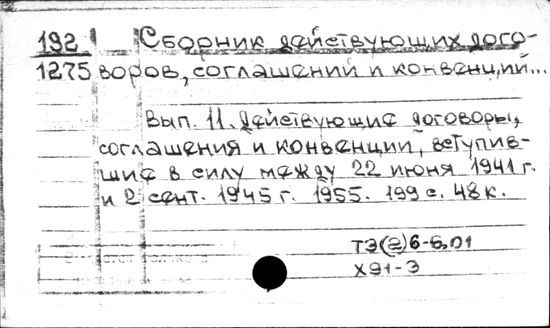 192 Сборник действующих дого-
1275 воров, соглашений и конвенций...
Вып. 11. Действующие договоры,
соглашения и конвенции, вступив-
шие в силу между 22 июня 1941 г.
и 2 сент. 1945 г. 1955. 199 с. 48 к.
Х91-3